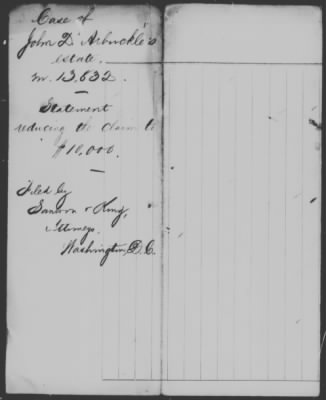 Case of
John D Arbuckle's
estate.
No. 13,632.
Statement
reducing the claim to
$10,000.
Filed by
& King,
Attorneys.
Washington, D.C.